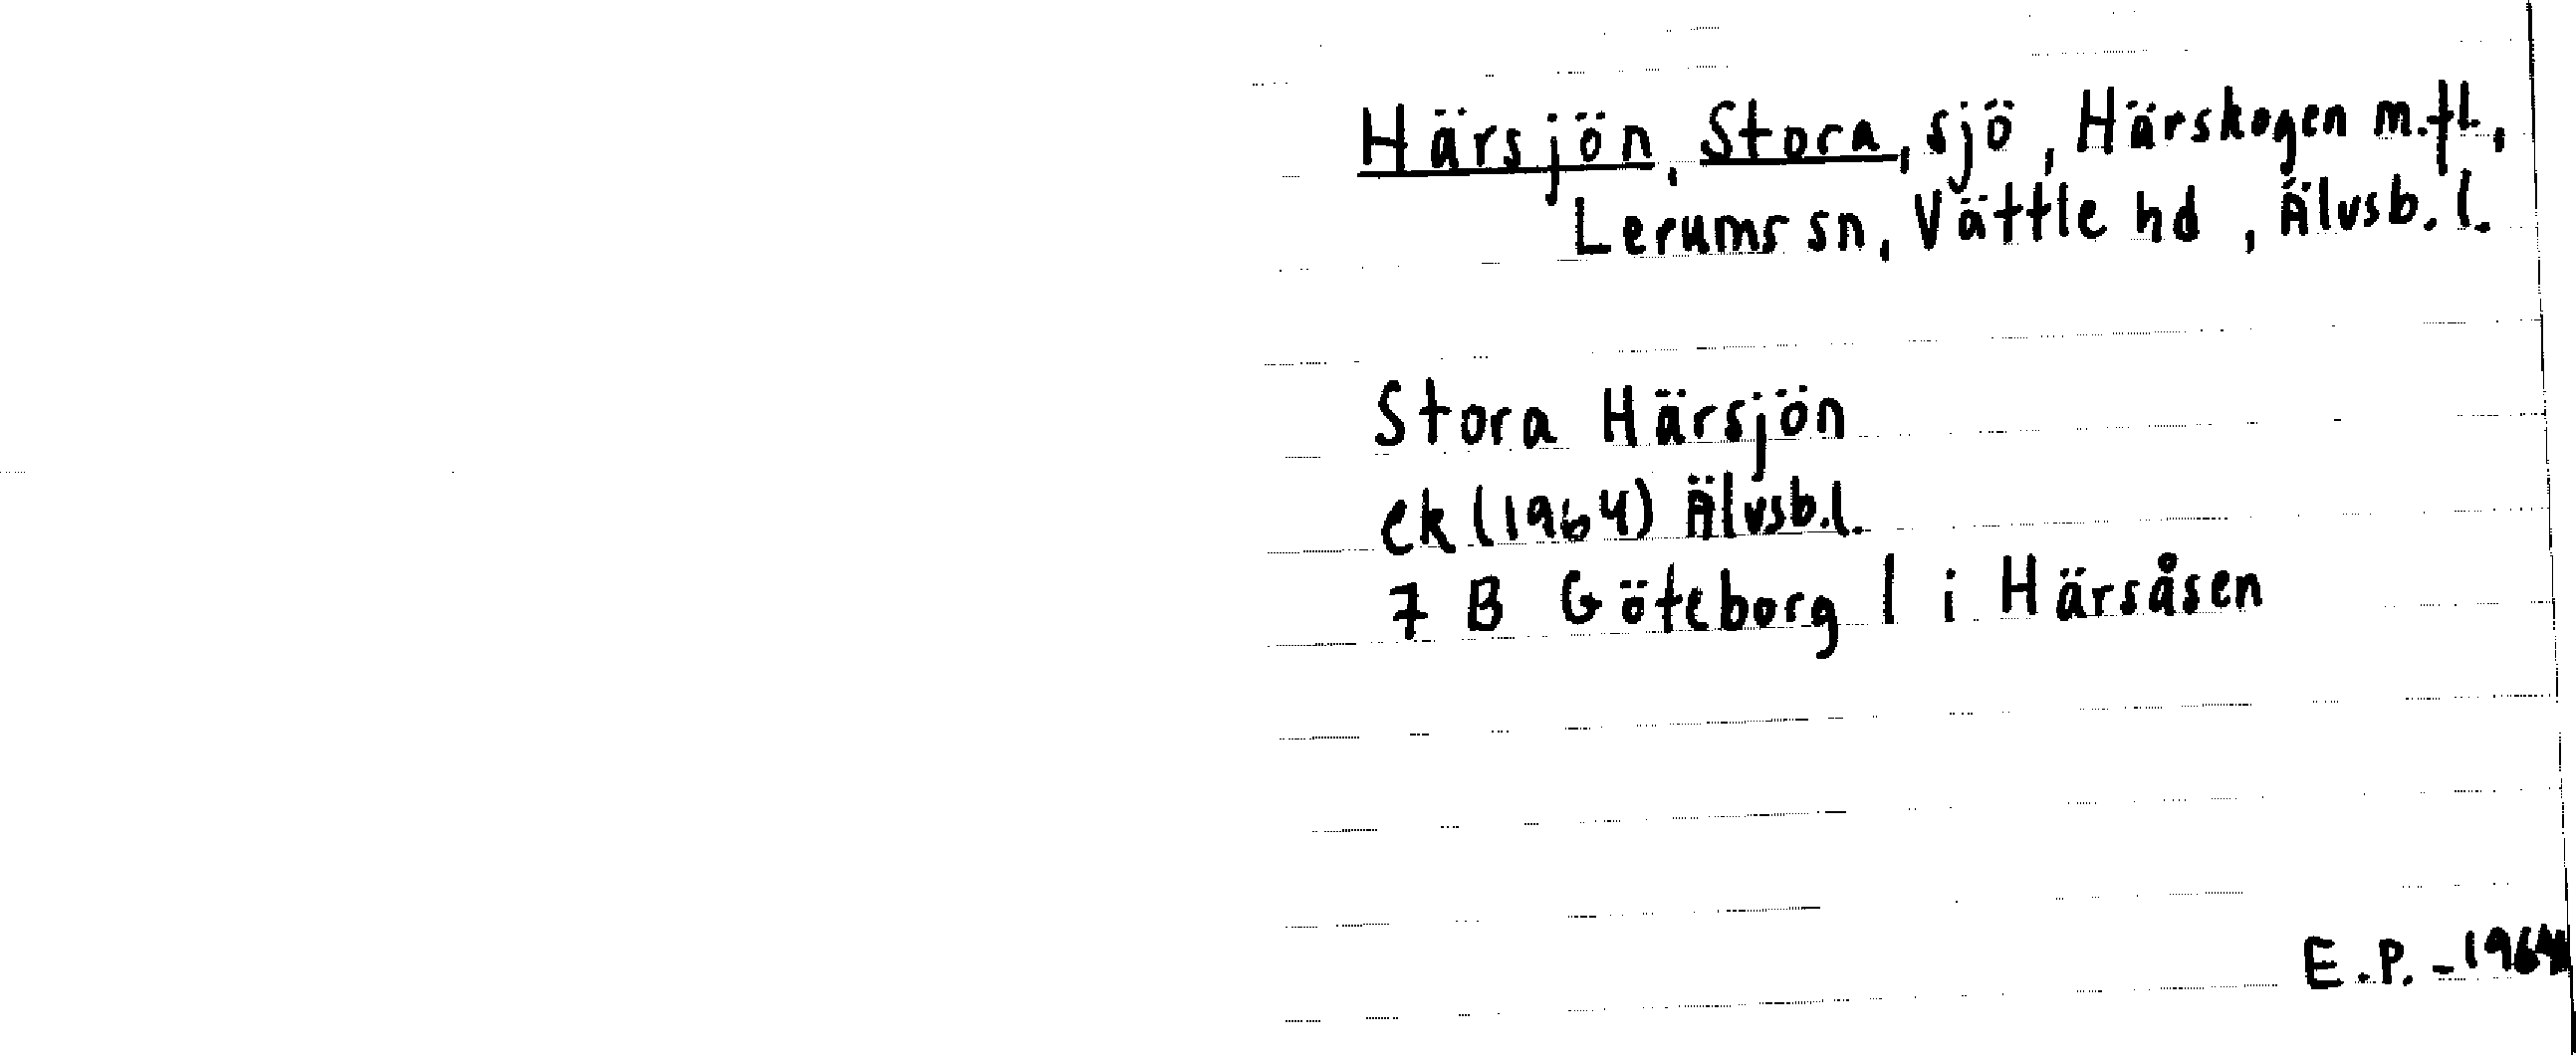 Härsjön, Stora, sjö, Härskogen m.fl.,
Lerums sn, Vättle hd, Älvsb.l.
Stora Härsjön
ek (1964) Älvsb.l.
7 B Göteborg 1 i Härsåsen
E.P. -1964